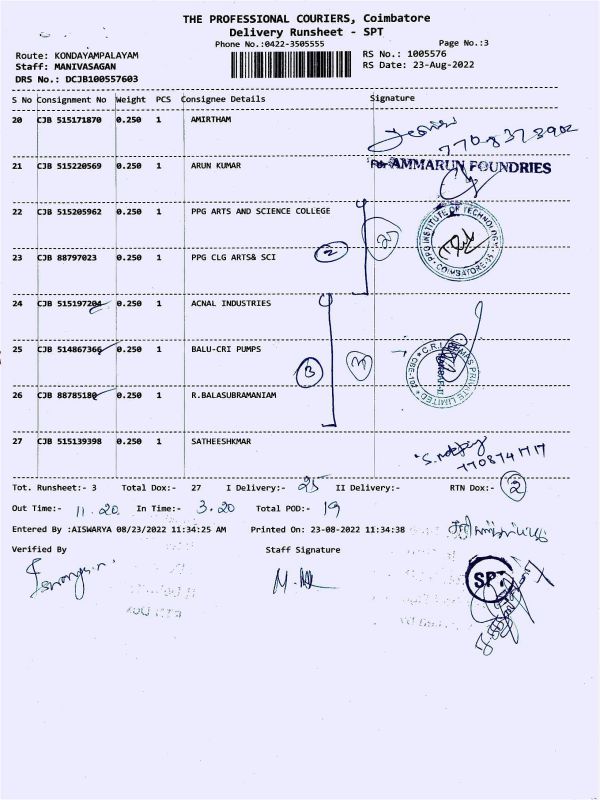 THE PROFESSIONAL COURIERS, Coimbatore
Delivery Runsheet - SPT
Phone No.:0422-3505555 Page No.:3
Route: KONDAYAMPALAYAM RS No.: 1005576
Staff: MANIVASAGAN RS Date: 23-Aug-2022
DRS No.: DCJB100557603
S No Consignment No Weight PCS Consignee Details Signature
20 CJB 515171870 0.250 1 AMIRTHAM
7708373902
21 CJB 515220569 0.250 1 ARUN KUMAR For AMMARUN FOUNDRIES
22 CJB 515205962 0.250 1 PPG ARTS AND SCIENCE COLLEGE
PPG INSTITUTE OF TECHNOLOGY
COIMBATORE-35
2
23 CJB 88797023 0.250 1 PPG CLG ARTS& SCI
24 CJB 515197204 0.250 1 ACNAL INDUSTRIES
25 CJB 514867366 0.250 1 BALU-CRI PUMPS
C.R.I. PUMPS PRIVATE LIMITED
3
26 CJB 88785180 0.250 1 R.BALASUBRAMANIAM
27 CJB 515139398 0.250 1 SATHEESHKMAR
Tot. Runsheet:- 3 Total Dox:- 27 I Delivery:- 25 II Delivery:- RTN Dox:- 2
Out Time:- 11.20 In Time:- 3.20 Total POD:- 19
Entered By :AISWARYA 08/23/2022 11:34:25 AM Printed On: 23-08-2022 11:34:38
Verified By Staff Signature
SPT